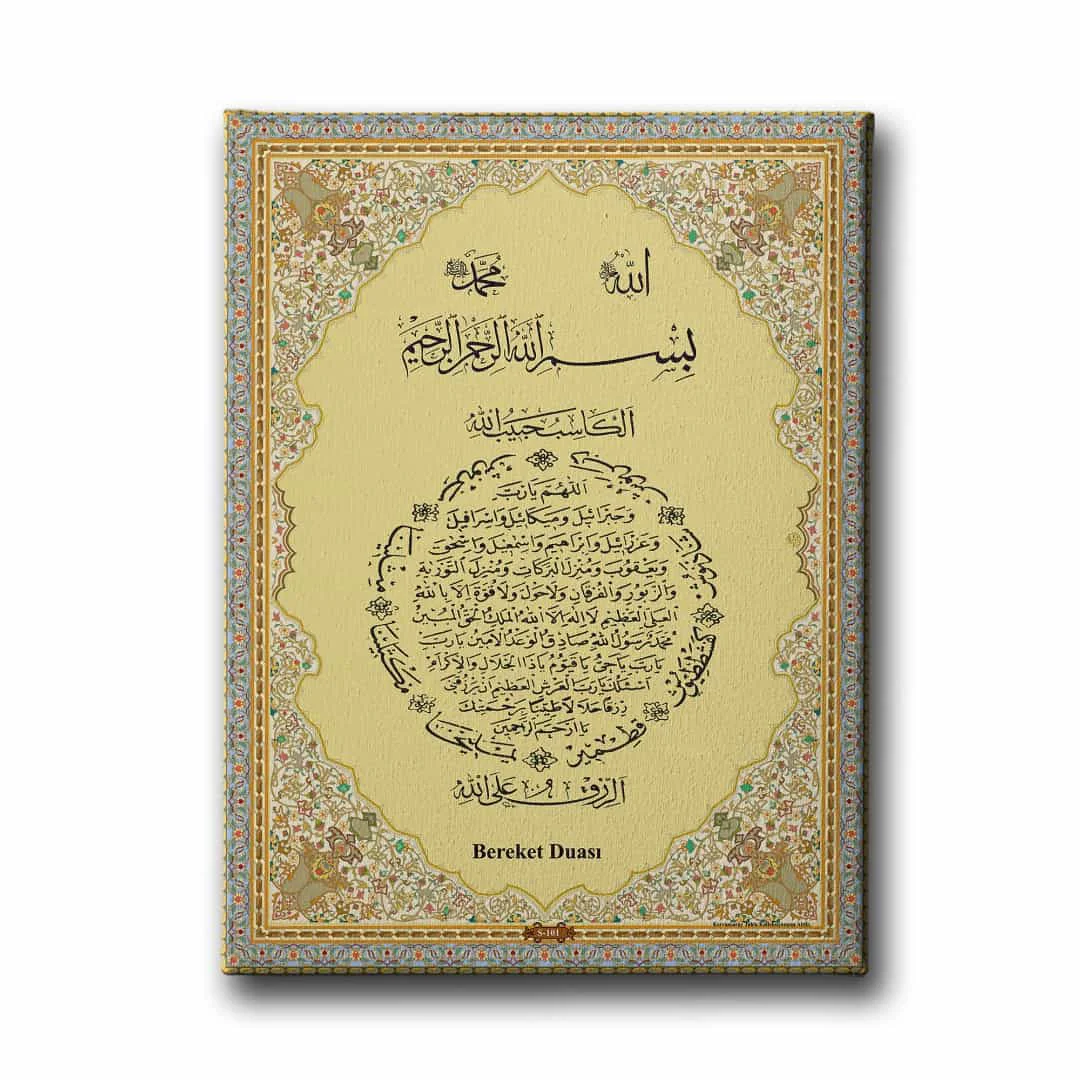 الله محمد
بِسْمِ اللهِ الرَّحْمٰنِ الرَّحِيمِ
اَلْكَاسِبُ حَبِيبُ اللهِ
اَللّٰهُمَّ يَارَبَّ
وَجَبْرَائِيلَ وَمِيكَائِيلَ وَاِسْرَافِيلَ
وَعَزْرَائِيلَ وَاِبْرَاهِيمَ وَاِسْمٰعِيلَ وَاِسْحٰقَ
وَيَعْقُوبَ وَمُنْزِلَ الْبَرَكَاتِ وَمُنْزِلَ التَّوْرٰيةِ
وَالزَّبُورِ وَالْفُرْقَانِ وَلَاحَوْلَ وَلَاقُوَّةَ اِلَّا بِاللهِ
الْعَلِيِّ الْعَظِيمِ لَا اِلٰهَ اِلَّا اللهُ الْمَلِكُ الْحَقُّ الْمُبِينُ
مُحَمَّدٌ رَسُولُ اللهِ صَادِقُ الْوَعْدِ الْاَمِينُ يَارَبِّ
يَارَبِّ يَاحَيُّ يَاقَيُّومُ يَاذَا الْجَلَالِ وَالْاِكْرَامِ
اَسْئَلُكَ يَارَبَّ الْعَرْشِ الْعَظِيمِ اَنْ تَرْزُقَنِي
رِزْقًا حَلَالًا طَيِّبًا بِرَحْمَتِكَ
يَا اَرْحَمَ الرَّاحِمِينَ
كفشططيوش
قطمير
يمليخا
مكثلينا
مثلينا
اَلرِّزْقُ عَلَى اللهِ
Bereket Duası
S-101